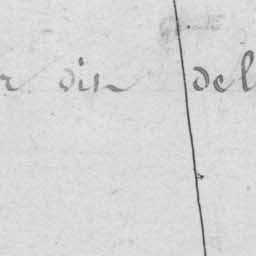 r din del